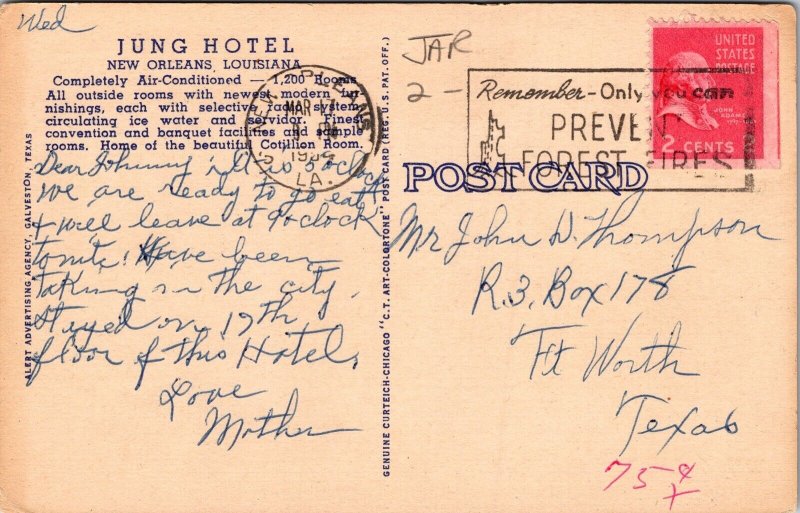 Wed
JUNG HOTEL
NEW ORLEANS, LOUISIANA
Completely Air-Conditioned — 1,200 Rooms
All outside rooms with newest modern fur-
nishings, each with selective radio system,
circulating ice water and servidor. Finest
convention and banquet facilities and sample
rooms. Home of the beautiful Cotillion Room.
Dear Johnny, it is 5 o'clock
we are ready to go eat
& will leave at 9 o'clock
tonite. Have been
taking in the city.
Stayed on 17th
floor of this Hotel.
Love
Mother
ALERT ADVERTISING AGENCY, GALVESTON, TEXAS
GENUINE CURTEICH-CHICAGO "C.T. ART-COLORTONE" POST CARD (REG. U.S. PAT. OFF.)
JAR
2-
NEW ORLEANS
MAR 17
LA.
Remember-Only you can
PREVENT
FOREST FIRES
UNITED
STATES
POSTAGE
JOHN
ADAMS
2 CENTS
POST CARD
Mr John D. Thompson
R.3, Box 178
Ft Worth
Texas
75¢